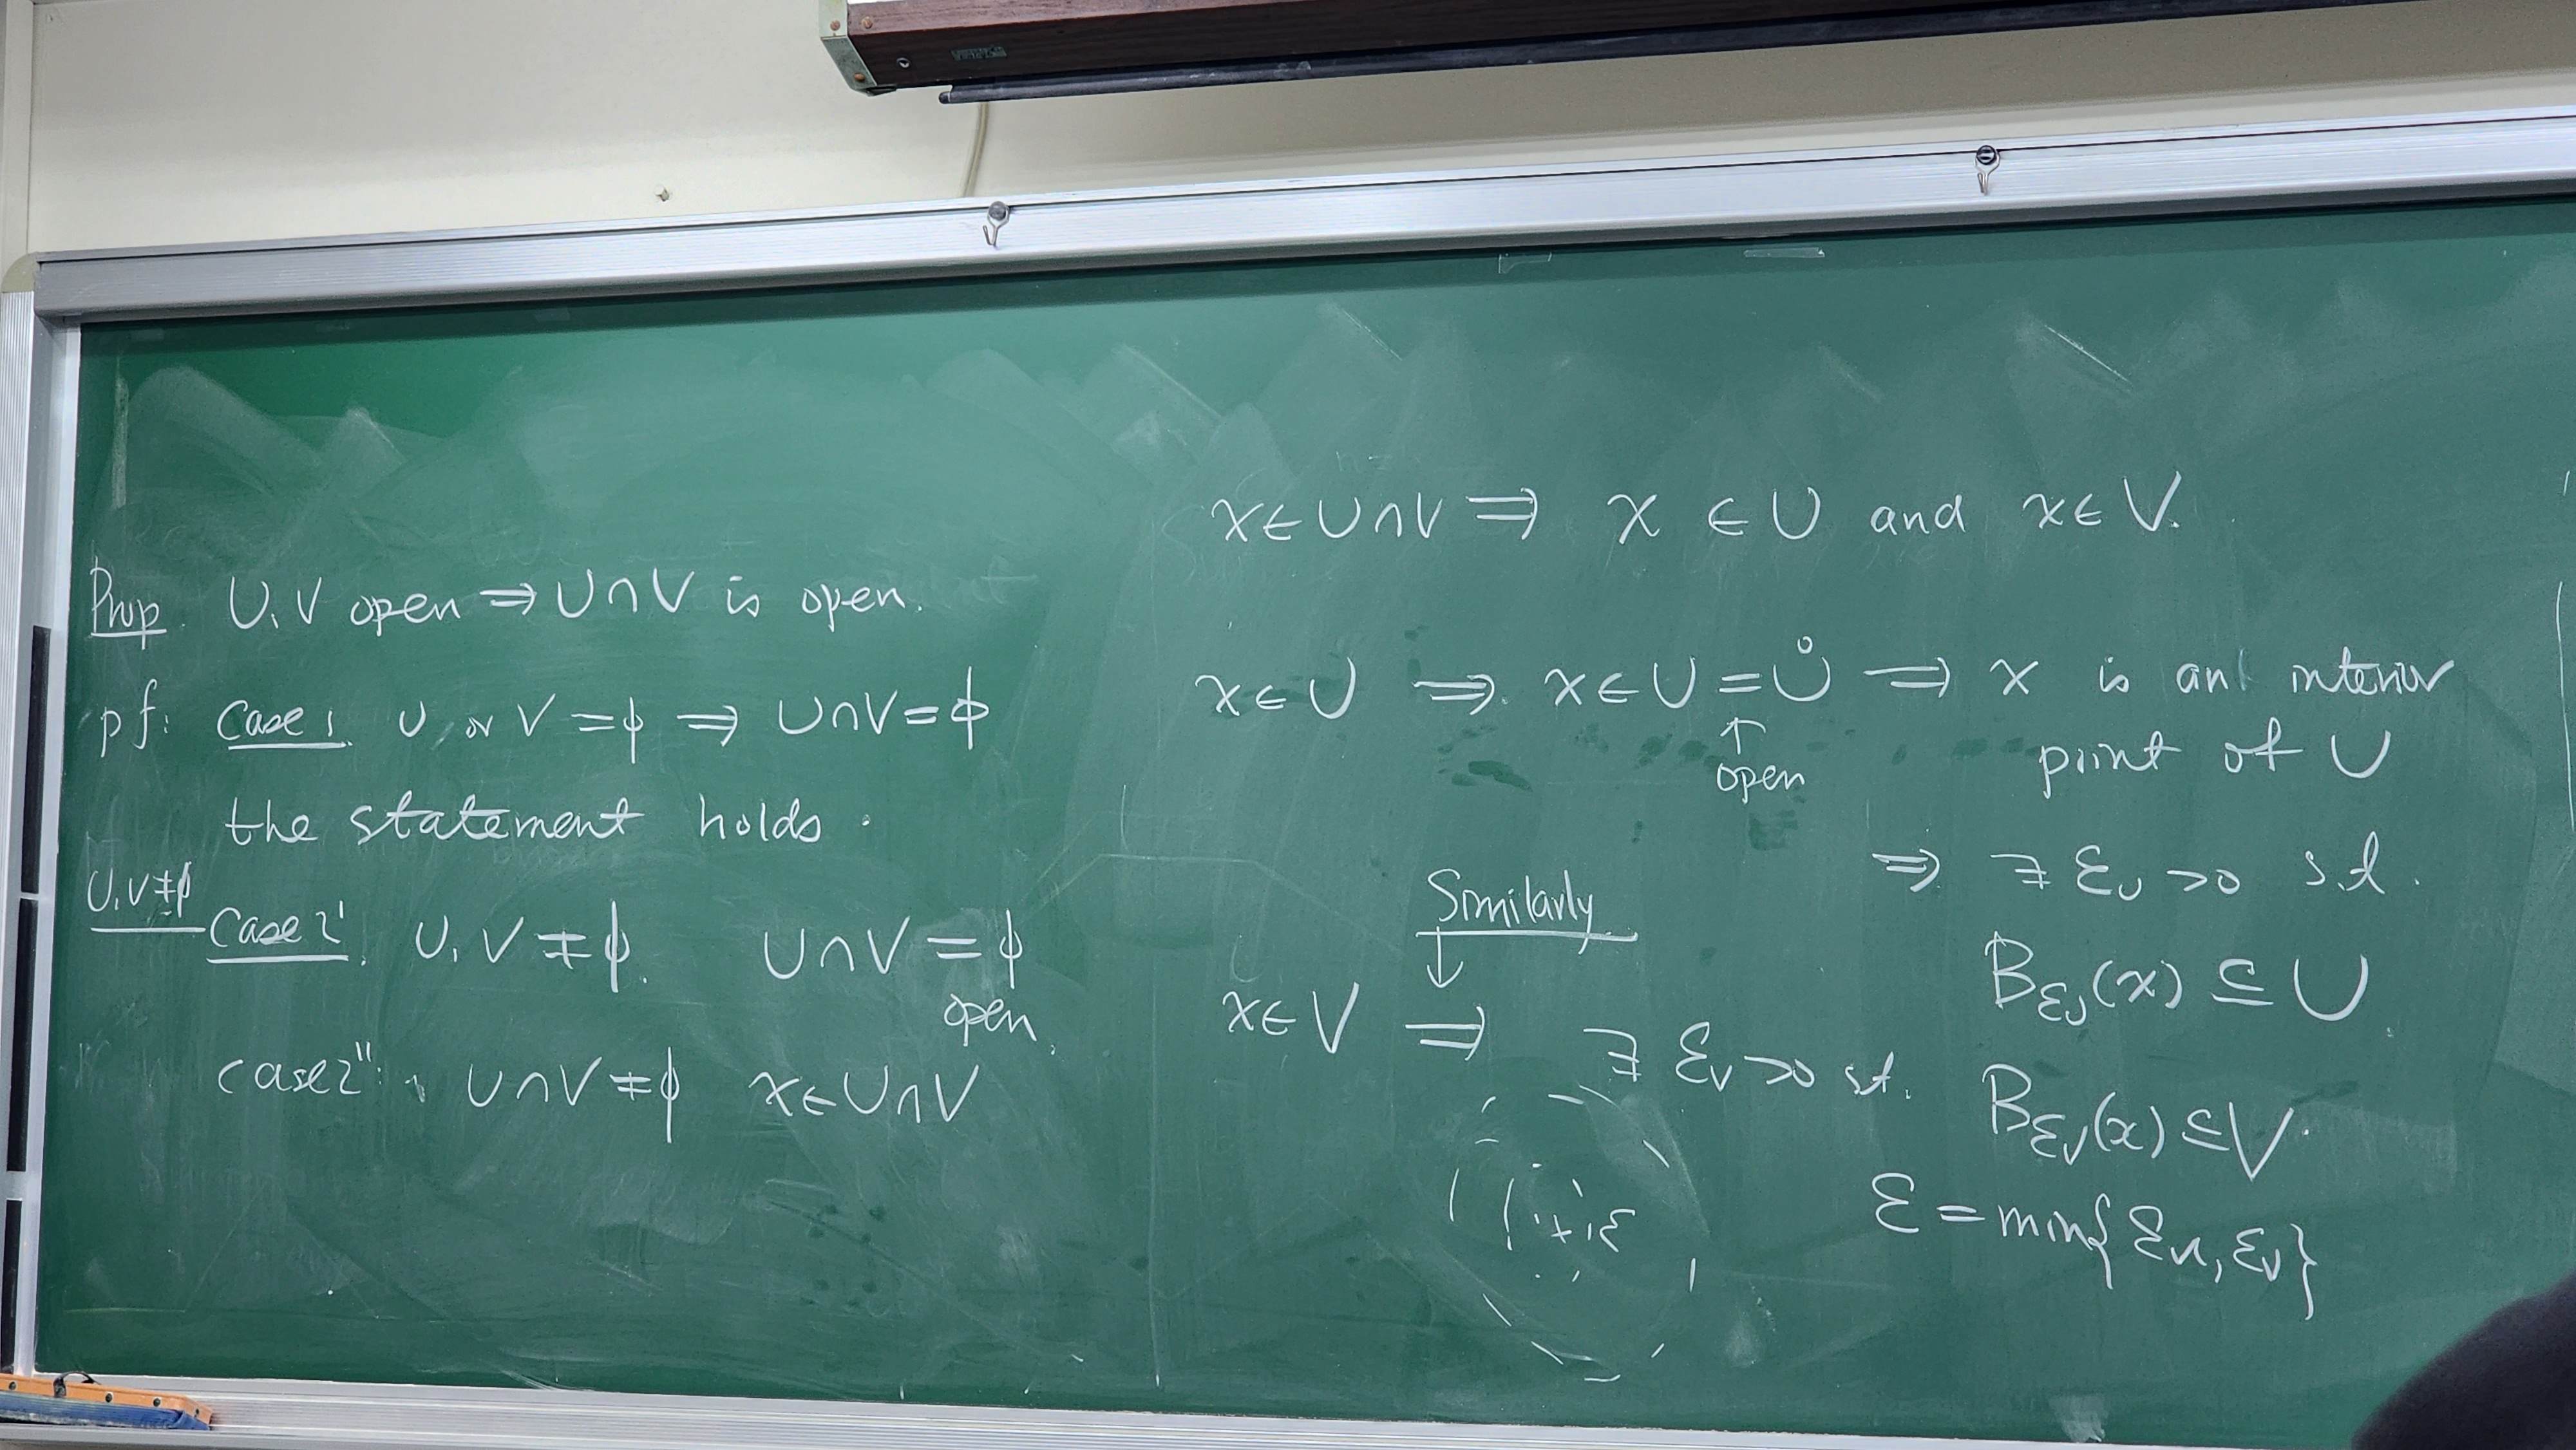 Prop. U, V open ⇒ U∩V is open.
pf: Case 1. U or V = ϕ ⇒ U∩V = ϕ
the statement holds.
U, V ≠ ϕ
Case 2'. U, V ≠ ϕ. U∩V = ϕ
open.
case 2'': U∩V ≠ ϕ x∈U∩V
x∈U∩V ⇒ x ∈ U and x∈V.
x∈U ⇒ x∈U = Ů ⇒ x is an interior
↑
open
point of U
⇒ ∃ ε_U >0 s.t.
B_{ε_U}(x) ⊆ U.
Similarly
↓
x∈V ⇒ ∃ ε_V >0 st. B_{ε_V}(x) ⊆ V.
ε
ε = min{ε_U, ε_V}